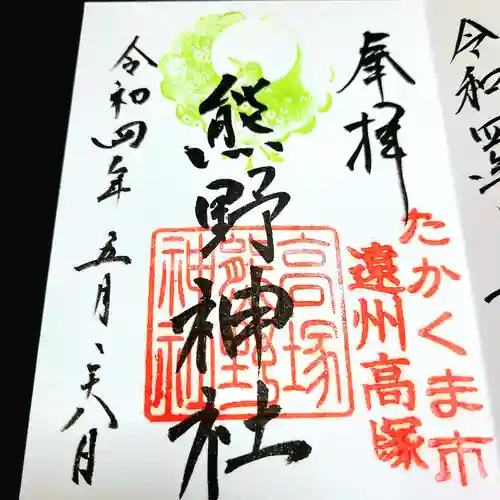 奉拝
たかくま市
遠州高塚
熊野神社
高塚
熊野
神社
令和四年 五月
令和四